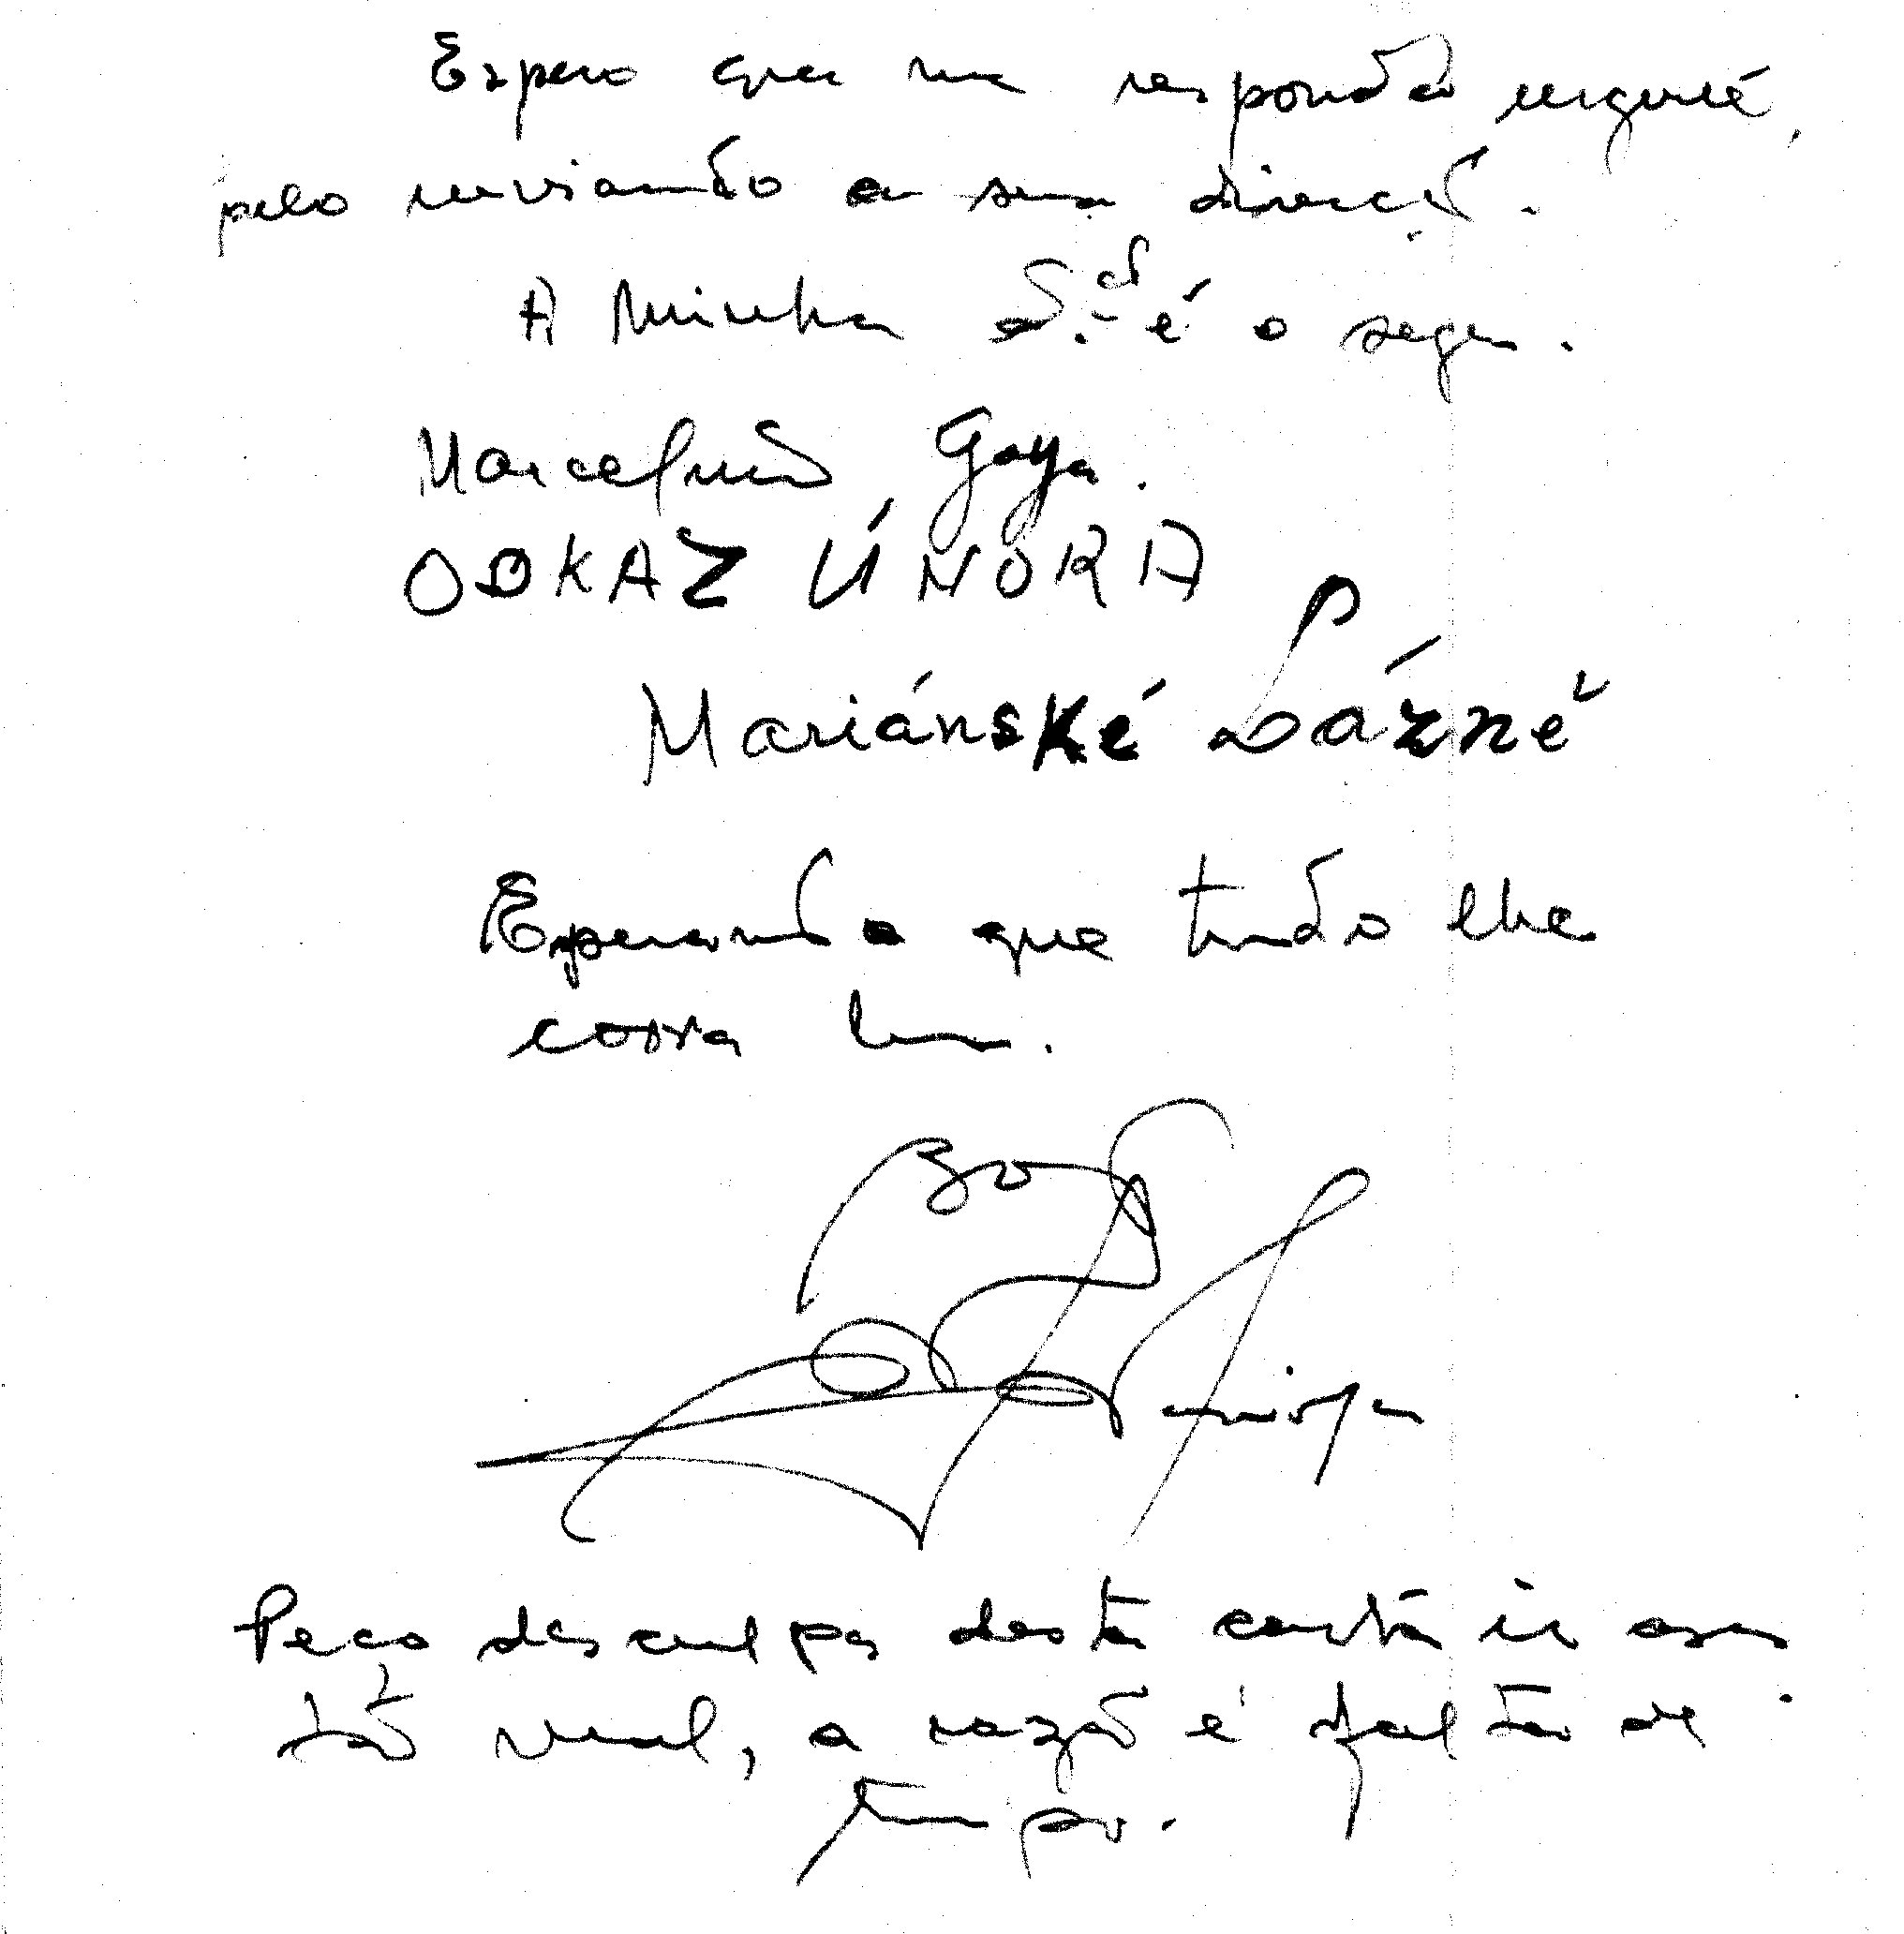 Espero que me responda urgente,
pelo enviando a sua direcção.
A minha d.ção é o segu.
Marcelino Goya.
ODKAZ ÚNORA
Mariánské Lázně
Esperando que tudo lhe
corra bem.
Peço desculpa desta carta ir assim
tão mal, a razão é falta de
tempo.